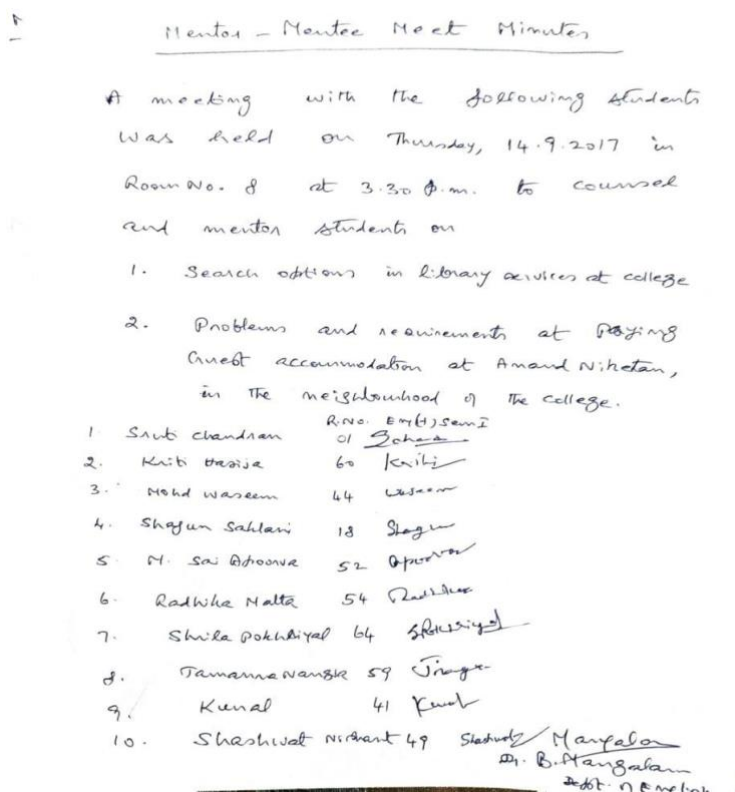 Mentor - Mentee Meet Minutes
A meeting with the following students
was held on Thursday, 14.9.2017 in
Room No. 8 at 3.30 p.m. to counsel
and mentor students on
1. Search options in library services at college
2. Problems and requirements at Paying
Guest accommodation at Anand Niketan,
in the neighbourhood of the college.
R.No. Eng(H) Sem I
1 Sruti Chandran 01
2. Kriti Hasija 60 Kriti
3. Mohd Waseem 44 Waseem
4. Shagun Sahlani 18 Shagun
5 M. Sai Apoorva 52 Apoorva
6. Radhika Malta 54 Radhika
7. Shrila Pokhriyal 64 SPokhriyal
8. Tamanna Nangia 59
9. Kunal 41 Kunal
10. Shashwat Nishant 49 Shashwat Mangalam
Dr. B. Mangalam
Dept. of English